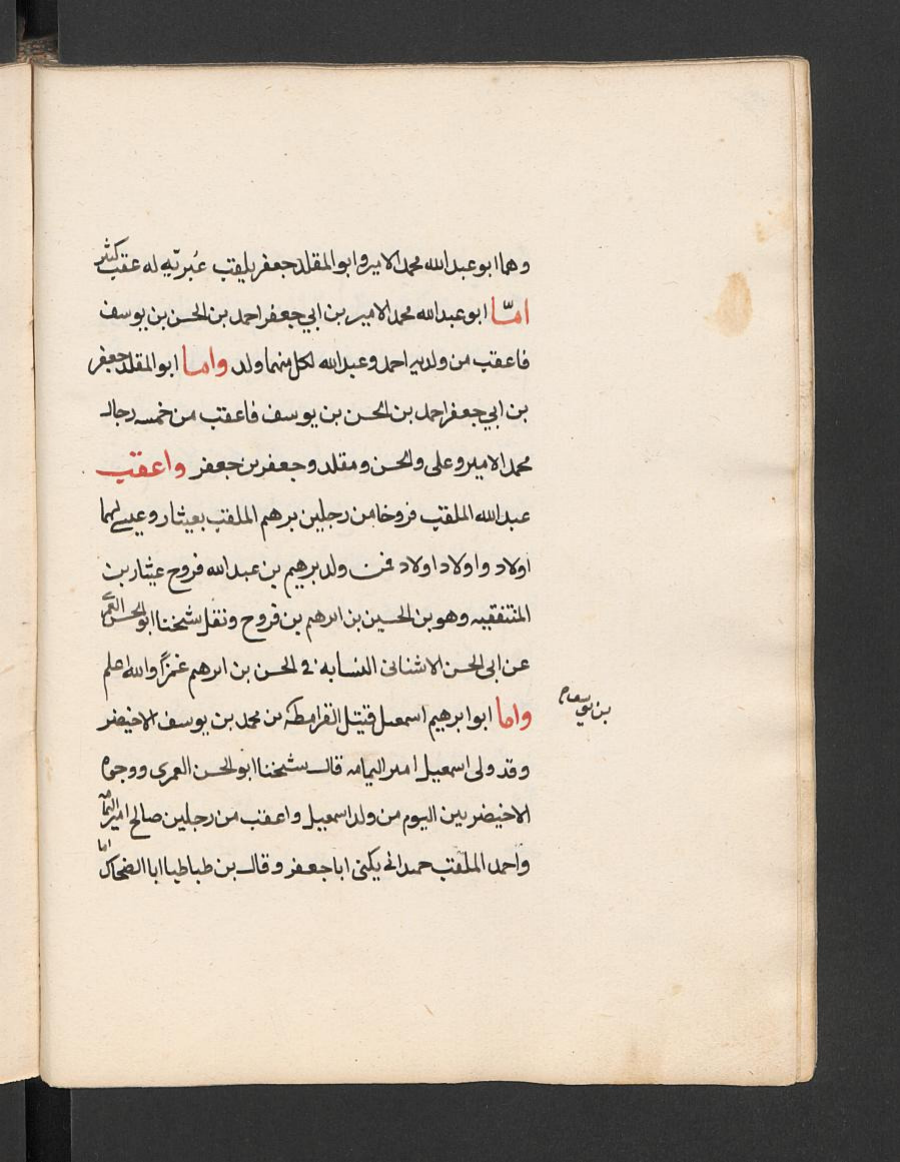 وهما ابو عبدالله محمد الامير وابو المقلد جعفر يلقب عُبريّه له عقب كثير
امّا ابو عبدالله محمد الامير بن ابي جعفر احمد بن الحسن بن يوسف
فاعقب من ولديه احمد وعبدالله لكل منهما ولد واما ابو المقلد جعفر
بن ابي جعفر احمد بن الحسن بن يوسف فاعقب من خمسه رجال
محمد الامير وعلى والحسن ومقلد وجعفر بن جعفر واعقب
عبدالله الملقب فروخا من رجلين برهم الملقب بعيثار وعيسى لهما
اولاد واولاد اولاد فمن ولد برهيم بن عبدالله فروح عيثار بن
المتنفقيه وهو بن الحسين بن ابرهم بن فروح ونقل شيخنا ابو الحسن العمرى
عن ابى الحسن الاشنانى النسابه فى الحسن بن ابرهم غمزاً والله اعلم
واما ابو ابرهيم اسمعيل قتيل القرامطه بن محمد بن يوسف الاخيضر
بن يوسف
وقد ولى اسمعيل امر اليمامه قال شيخنا ابو الحسن العمرى ووجوه
الاخيضريين اليوم من ولد اسمعيل واعقب من رجلين صالح امير اليمامه
واحمد الملقب حميدان يكنى ابا جعفر وقال بن طباطبا ابا الضحاك اما